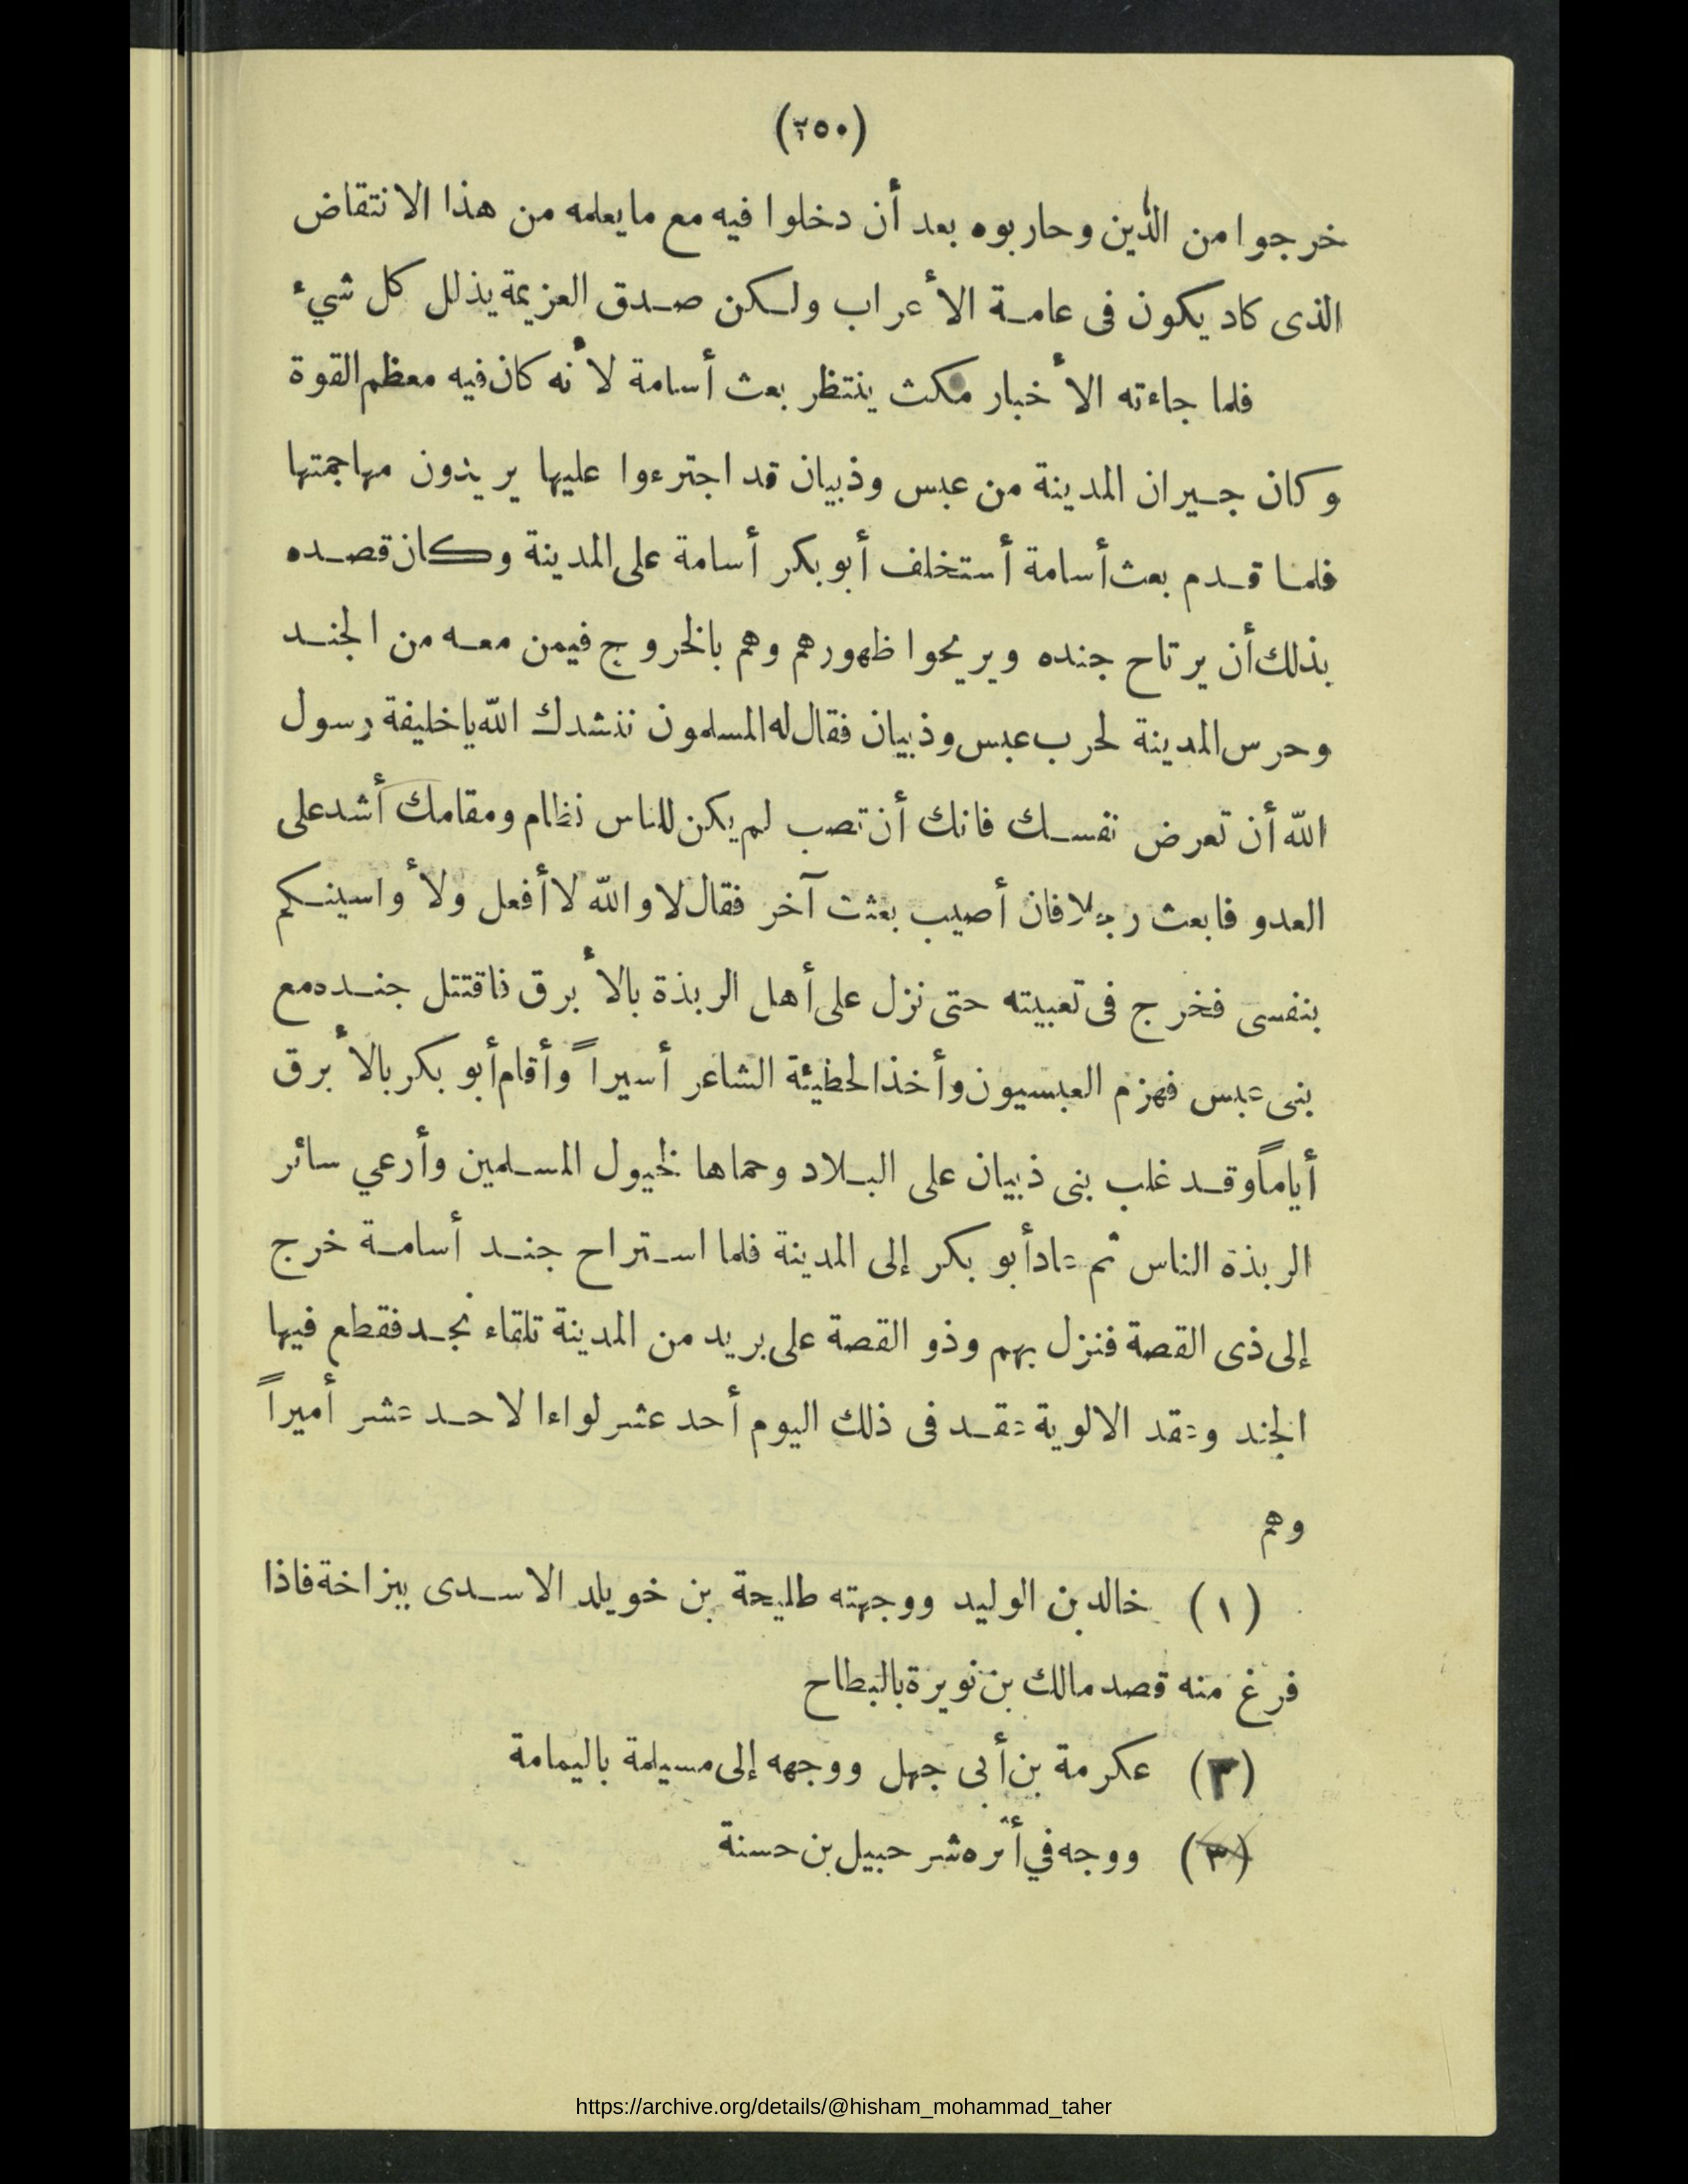 (٢٥٠)
خرجوا من الدين وحاربوه بعد أن دخلوا فيه مع ما يعلمه من هذا الانتقاض
الذى كاد يكون فى عامة الأعراب ولكن صدق العزيمة يذلل كل شيء
فلما جاءته الأخبار مكث ينتظر بعث أسامة لأنه كان فيه معظم القوة
وكان جيران المدينة من عبس وذبيان قد اجترءوا عليها يريدون مهاجمتها
فلما قدم بعث أسامة أستخلف أبو بكر أسامة على المدينة وكان قصده
بذلك أن يرتاح جنده ويريحوا ظهورهم وهم بالخروج فيمن معه من الجند
وحرس المدينة لحرب عبس وذبيان فقال له المسلمون ننشدك الله يا خليفة رسول
الله أن تعرض نفسك فانك أن تصب لم يكن للناس نظام ومقامك أشد على
العدو فابعث رجلا فان أصيب بعثت آخر فقال لا والله لا أفعل ولأواسينكم
بنفسى فخرج فى تعبيته حتى نزل على أهل الربذة بالأبرق فاقتتل جنده مع
بنى عبس فهزم العبسيون وأخذ الحطيئة الشاعر أسيراً وأقام أبو بكر بالأبرق
أياماً وقد غلب بنى ذبيان على البلاد وحماها لخيول المسلمين وأرعي سائر
الربذة الناس ثم عاد أبو بكر إلى المدينة فلما استراح جند أسامة خرج
إلى ذى القصة فنزل بهم وذو القصة على بريد من المدينة تلقاء نجد فقطع فيها
الجند وعقد الالوية عقد فى ذلك اليوم أحد عشر لواءا لاحد عشر أميراً
وهم
(١) خالد بن الوليد ووجهته طليحة بن خويلد الاسدى ببزاخة فاذا
فرغ منه قصد مالك بن نويرة بالبطاح
(٢) عكرمة بن أبى جهل ووجهه إلى مسيلمة باليمامة
(٣) ووجه في أثره شرحبيل بن حسنة
https://archive.org/details/@hisham_mohammad_taher